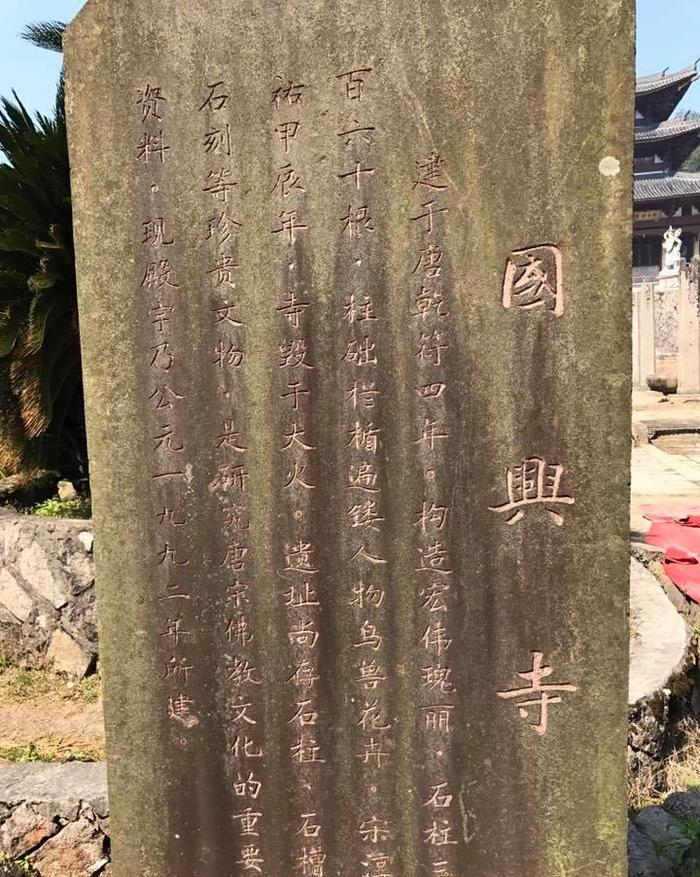 國興寺
建于唐乾符四年。构造宏伟瑰丽，石柱三
百六十根，柱础栏楯遍镂人物鸟兽花卉。宋淳
祐甲辰年，寺毁于大火。遗址尚存石柱、石槽
石刻等珍贵文物，是研究唐宗佛教文化的重要
资料，现殿宇乃公元一九九二年所建。